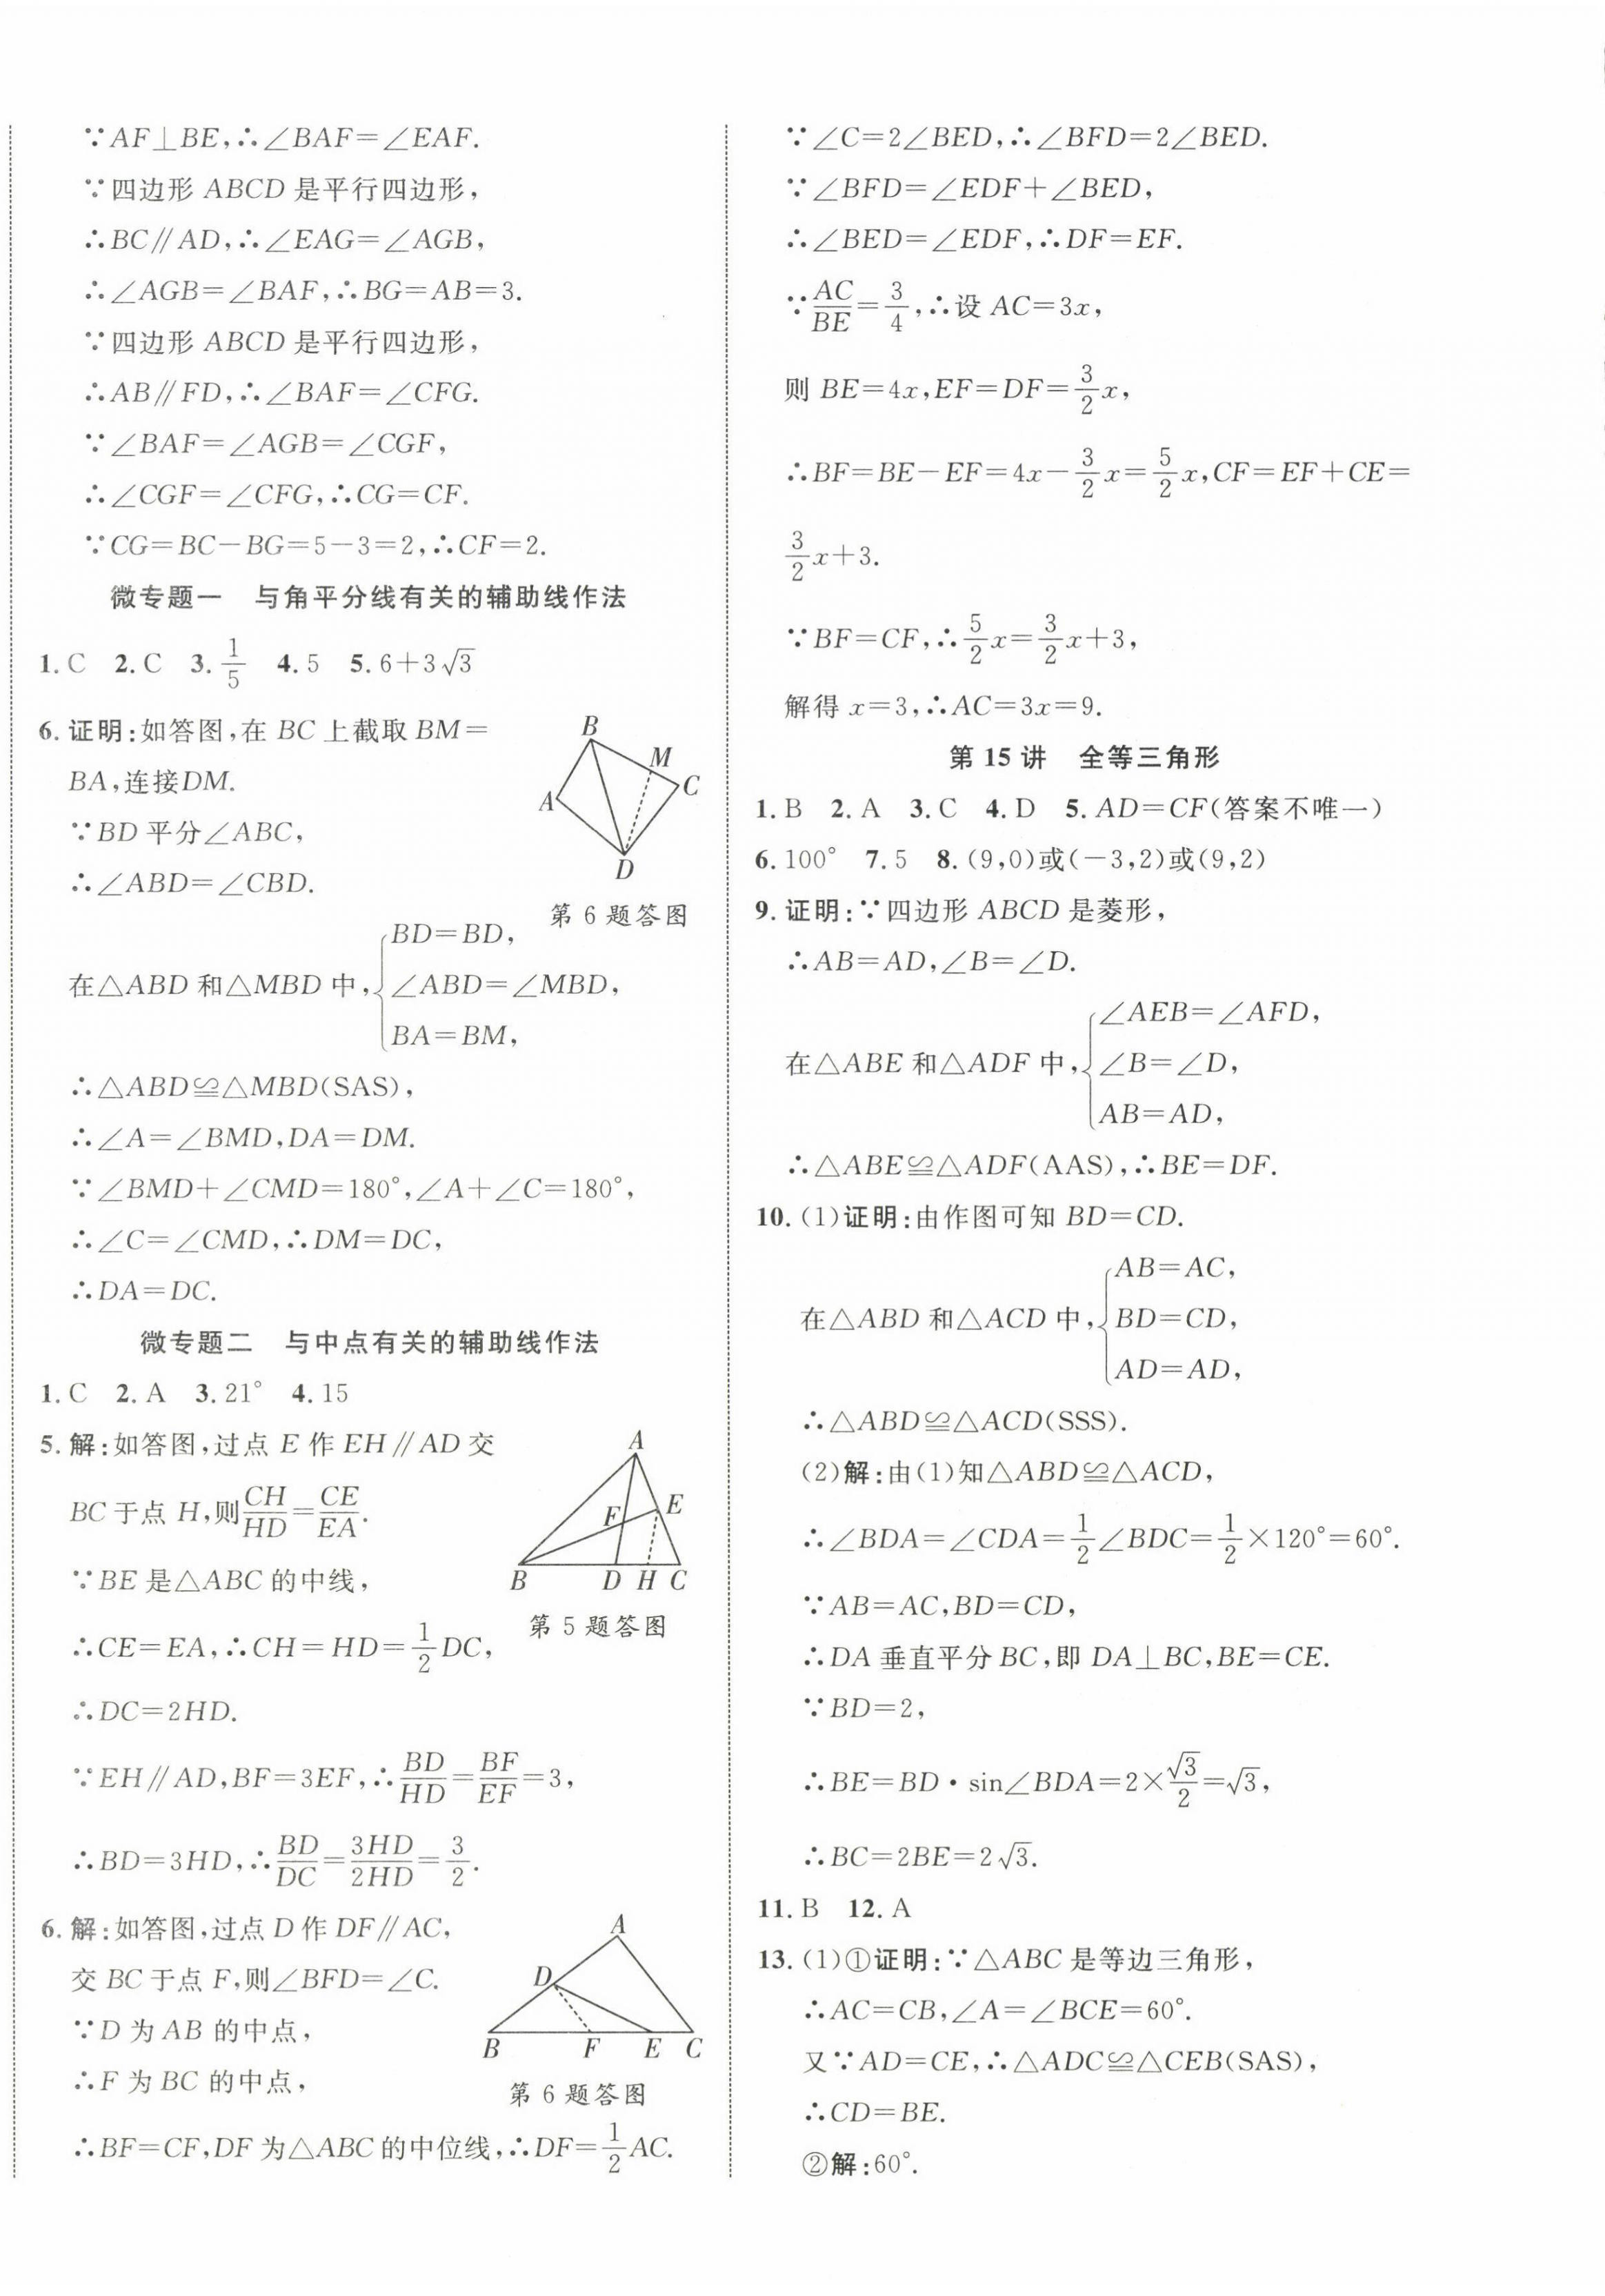 ∵AF⊥BE,∴∠BAF=∠EAF.
∵四边形 ABCD 是平行四边形,
∴BC∥AD,∴∠EAG=∠AGB,
∴∠AGB=∠BAF,∴BG=AB=3.
∵四边形 ABCD 是平行四边形,
∴AB∥FD,∴∠BAF=∠CFG.
∵∠BAF=∠AGB=∠CGF,
∴∠CGF=∠CFG,∴CG=CF.
∵CG=BC-BG=5-3=2,∴CF=2.
微专题一 与角平分线有关的辅助线作法
1.C 2.C 3.1/5 4.5 5.6+3√3
6.证明:如答图,在 BC 上截取 BM=
BA,连接DM.
∵BD 平分∠ABC,
∴∠ABD=∠CBD.
B
M
C
A
D
第 6 题答图
在△ABD 和△MBD 中,{BD=BD,
∠ABD=∠MBD,
BA=BM,
∴△ABD≌△MBD(SAS),
∴∠A=∠BMD,DA=DM.
∵∠BMD+∠CMD=180°,∠A+∠C=180°,
∴∠C=∠CMD,∴DM=DC,
∴DA=DC.
微专题二 与中点有关的辅助线作法
1.C 2.A 3.21° 4.15
5.解:如答图,过点 E 作 EH∥AD 交
BC于点 H,则CH/HD=CE/EA.
∵BE 是△ABC 的中线,
∴CE=EA,∴CH=HD=1/2DC,
A
F E
B D H C
第 5 题答图
∴DC=2HD.
∵EH∥AD,BF=3EF,∴BD/HD=BF/EF=3,
∴BD=3HD,∴BD/DC=3HD/2HD=3/2.
6.解:如答图,过点 D 作 DF∥AC,
交 BC 于点 F,则∠BFD=∠C.
∵D 为 AB 的中点,
∴F 为 BC 的中点,
A
D
B F E C
第 6 题答图
∴BF=CF,DF 为△ABC 的中位线,∴DF=1/2AC.
∵∠C=2∠BED,∴∠BFD=2∠BED.
∵∠BFD=∠EDF+∠BED,
∴∠BED=∠EDF,∴DF=EF.
∵AC/BE=3/4,∴设 AC=3x,
则 BE=4x,EF=DF=3/2x,
∴BF=BE-EF=4x-3/2x=5/2x,CF=EF+CE=
3/2x+3.
∵BF=CF,∴5/2x=3/2x+3,
解得 x=3,∴AC=3x=9.
第 15 讲 全等三角形
1.B 2.A 3.C 4.D 5.AD=CF(答案不唯一)
6.100° 7.5 8.(9,0)或(-3,2)或(9,2)
9.证明:∵四边形 ABCD 是菱形,
∴AB=AD,∠B=∠D.
在△ABE 和△ADF 中,{∠AEB=∠AFD,
∠B=∠D,
AB=AD,
∴△ABE≌△ADF(AAS),∴BE=DF.
10.(1)证明:由作图可知 BD=CD.
在△ABD 和△ACD 中,{AB=AC,
BD=CD,
AD=AD,
∴△ABD≌△ACD(SSS).
(2)解:由(1)知△ABD≌△ACD,
∴∠BDA=∠CDA=1/2∠BDC=1/2×120°=60°.
∵AB=AC,BD=CD,
∴DA 垂直平分 BC,即 DA⊥BC,BE=CE.
∵BD=2,
∴BE=BD·sin∠BDA=2×√3/2=√3,
∴BC=2BE=2√3.
11.B 12.A
13.(1)①证明:∵△ABC 是等边三角形,
∴AC=CB,∠A=∠BCE=60°.
又∵AD=CE,∴△ADC≌△CEB(SAS),
∴CD=BE.
②解:60°.